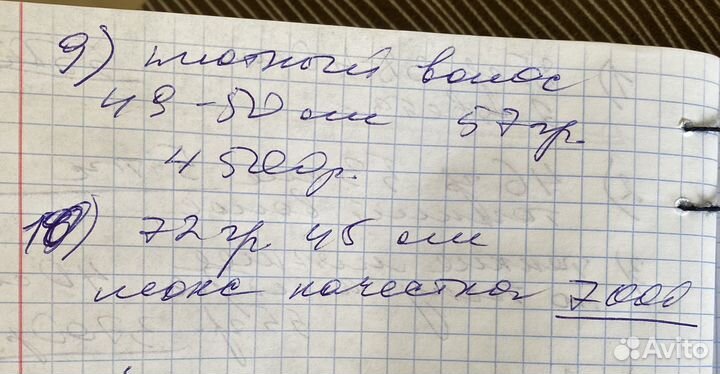 9) плотный волос
49-50 см 57гр.
4500р.
10) 72гр 45 см
люкс качества 7000
Avito